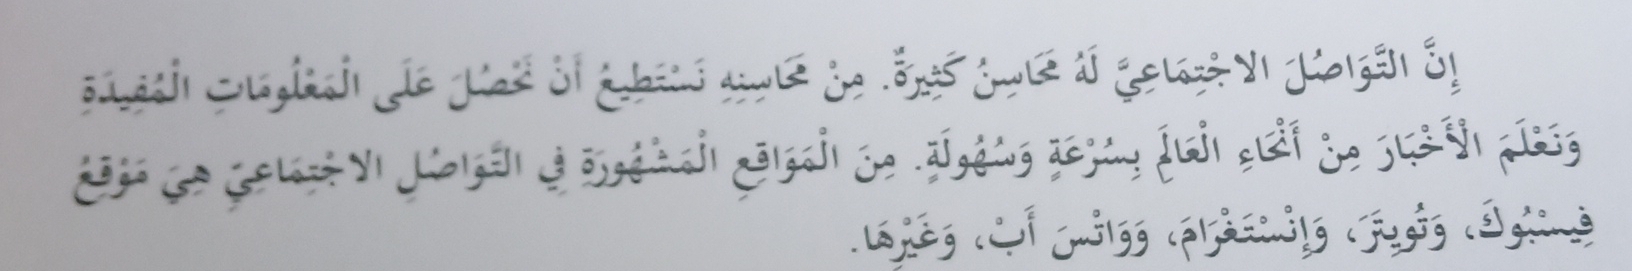 إِنَّ التَّوَاصُلَ الاجْتِمَاعِيَّ لَهُ مَحَاسِنُ كَثِيرَةٌ. مِنْ مَحَاسِنِهِ نَسْتَطِيعُ أَنْ نَحْصُلَ عَلَى الْمَعْلُومَاتِ الْمُفِيدَةِ
وَنَعْلَمَ الْأَخْبَارَ مِنْ أَنْحَاءِ الْعَالَمِ بِسُرْعَةٍ وَسُهُولَةٍ. مِنَ الْمَوَاقِعِ الْمَشْهُورَةِ فِي التَّوَاصُلِ الاجْتِمَاعِيِّ هِيَ مَوْقِعُ
فِيسْبُوكَ، وَتُوِيتَرَ، وَإِنْسْتَغْرَامَ، وَوَاتْسَ أَبْ، وَغَيْرِهَا.